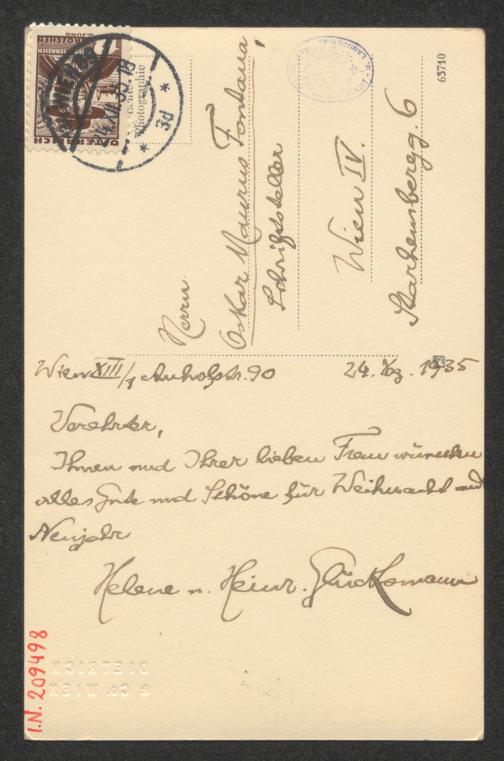 ÖSTERREICH
GROSCHEN
WIEN
24.XII.35-18
* 3d *
Echte
Photographie
65710
Herrn
Oskar Maurus Fontana,
Schriftsteller
Wien IV.
Starhembergg. 6
Wien XIII/1 Auhofstr. 90
24. Dez. 1935
Verehrter,
Ihnen und Ihrer lieben Frau wünschen
alles Gute und Schöne für Weihnacht und
Neujahr
Helene u. Heinr. Glücksmann
DIETRICH
& Co. WIEN
I.N. 209498